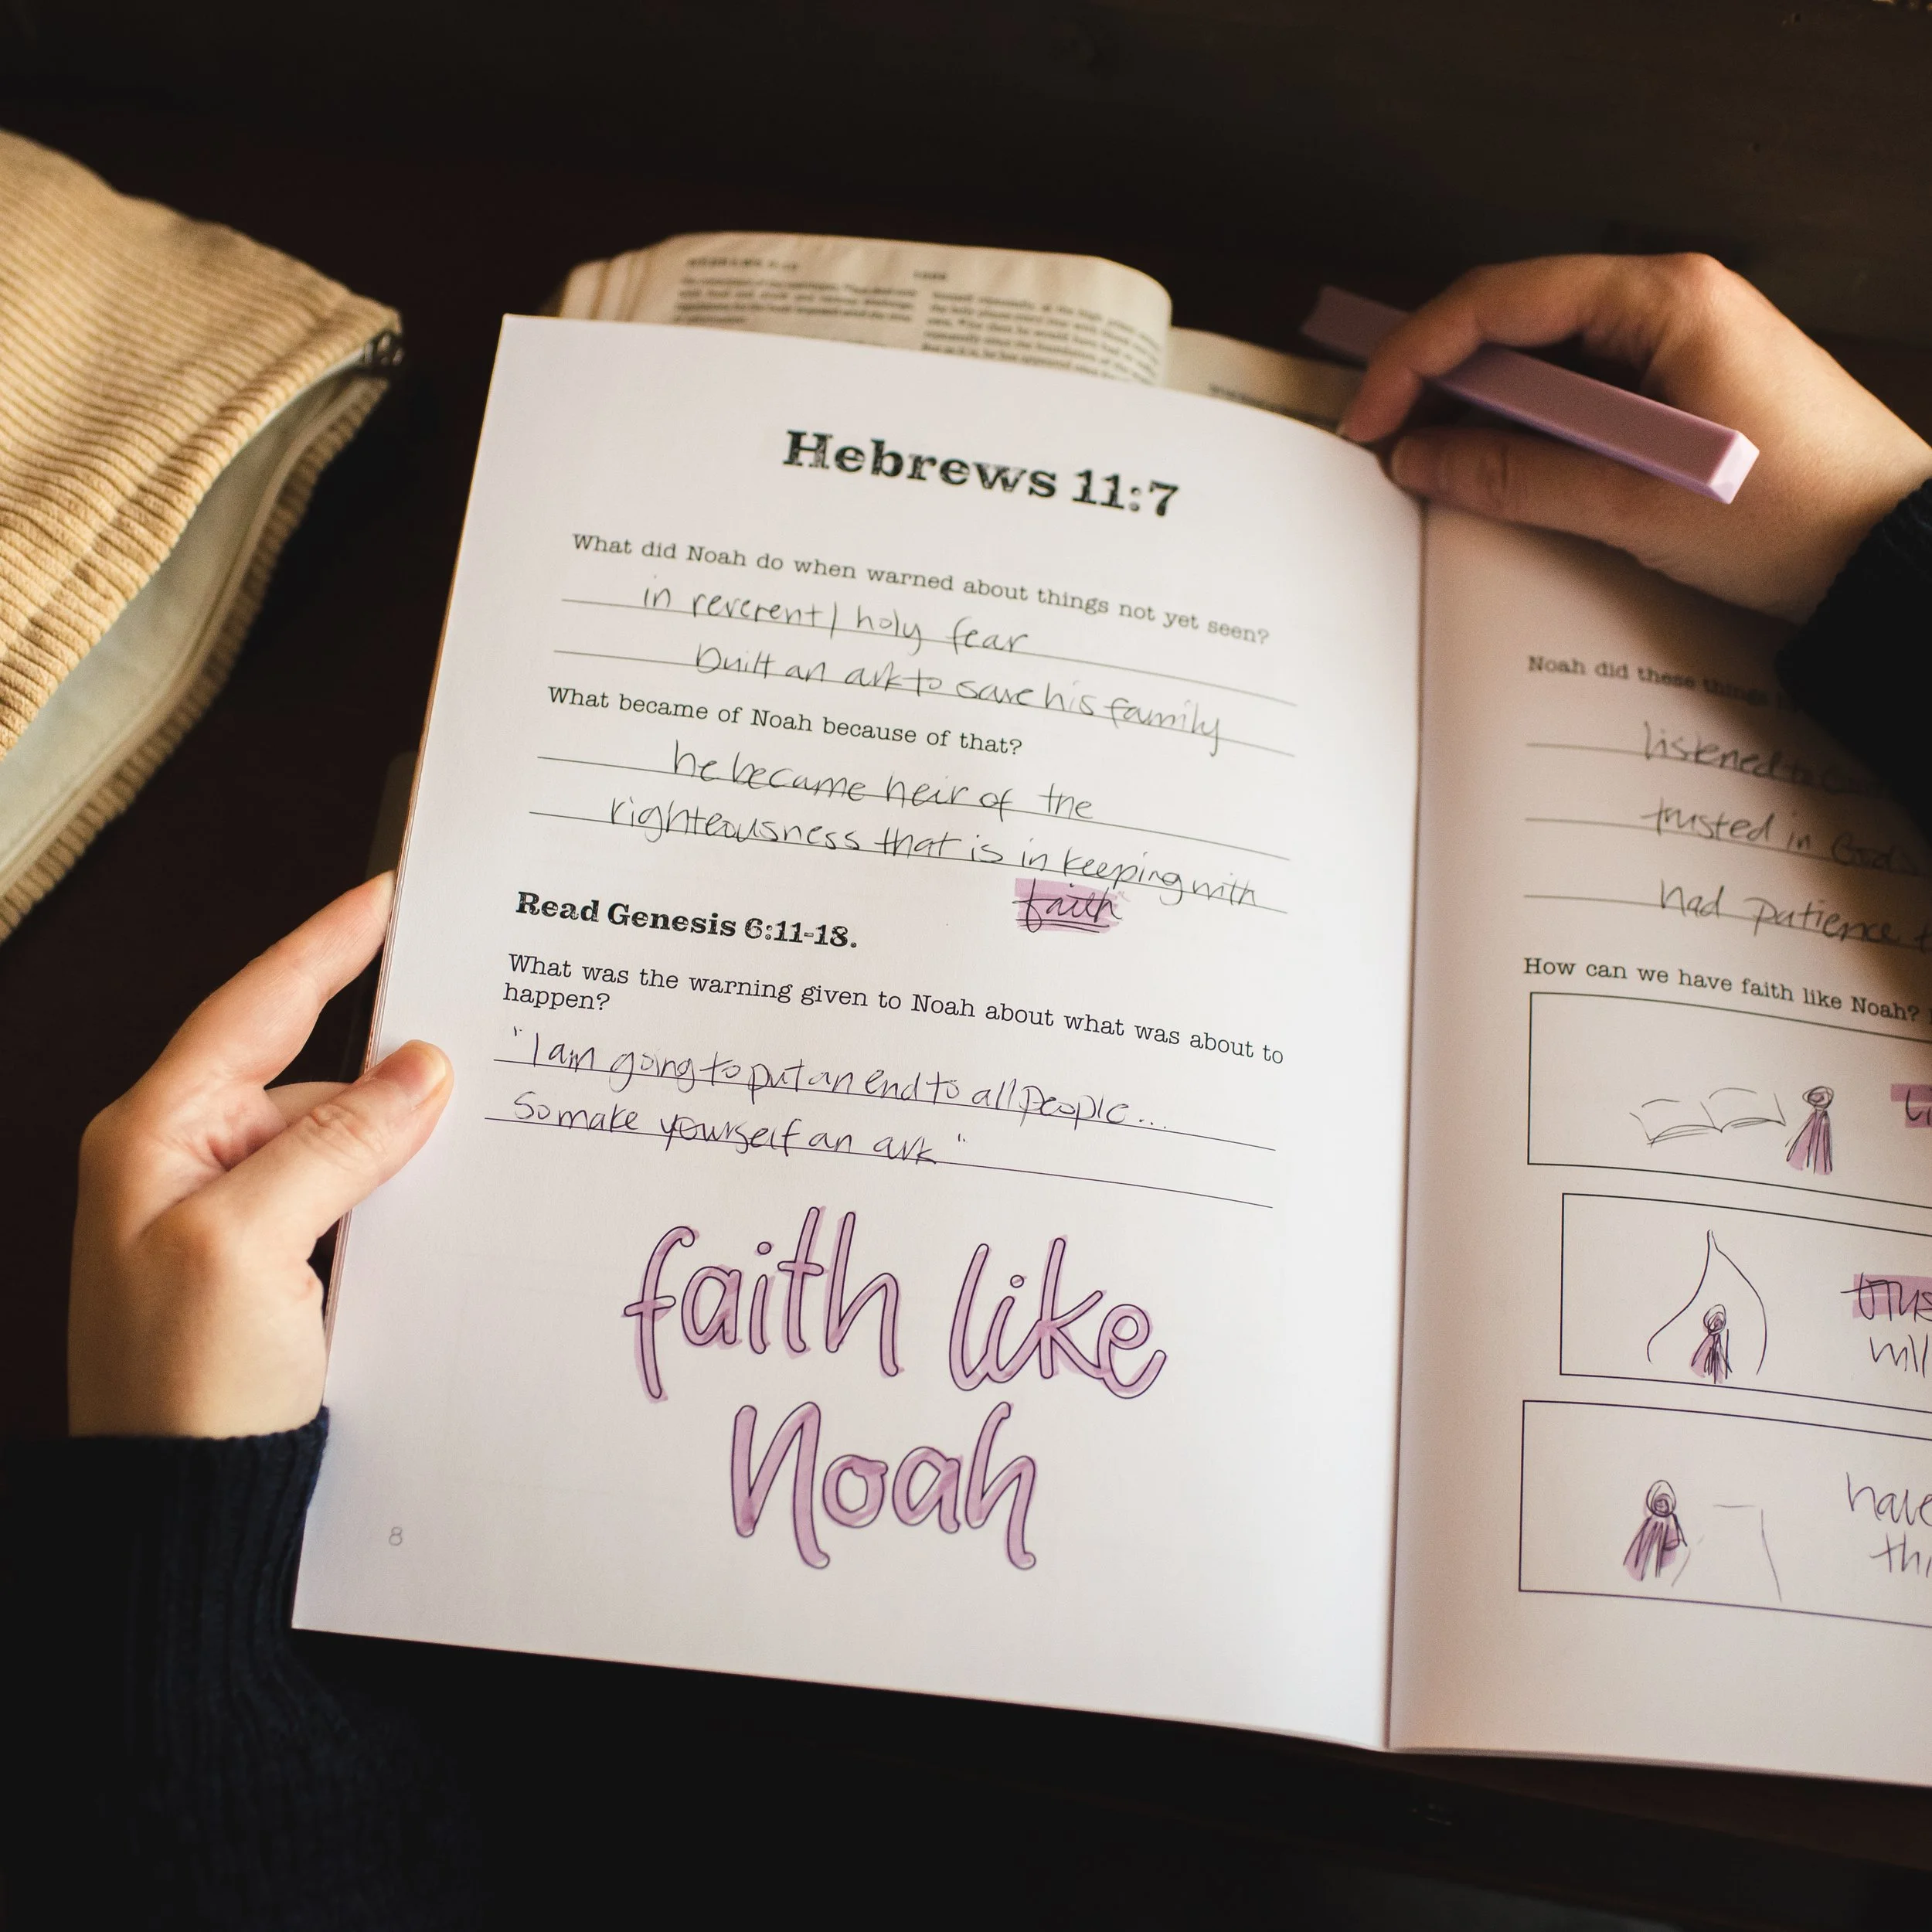 Hebrews 11:7
What did Noah do when warned about things not yet seen?
in reverent/ holy fear
built an ark to save his family
What became of Noah because of that?
he became heir of the
righteousness that is in keeping with
faith
Read Genesis 6:11-18.
What was the warning given to Noah about what was about to
happen?
"I am going to put an end to all people...
So make yourself an ark"
faith like
Noah
8
Noah did these things
listened to
trusted in God
had patience
How can we have faith like Noah?
will
have